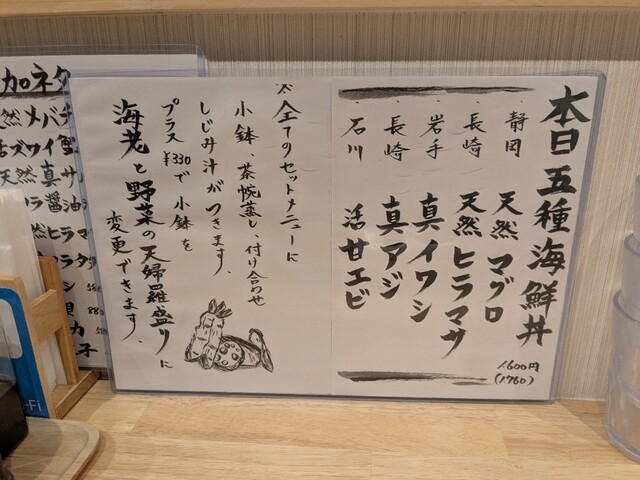 本日五種海鮮丼
1,600円
(1,760)
・静岡 天然マグロ
・長崎 天然ヒラマサ
・岩手 真イワシ
・長崎 真アジ
・石川 活甘エビ
全てのセットメニューに
小鉢、茶碗蒸し、付け合わせ
しじみ汁がつきます。
プラス¥330で小鉢を
海老と野菜の天婦羅盛りに
変更できます。
加ネタ
然メバチ
活ズワイ蟹
天然真サ
ラ醤油
然ヒラマ
Fi